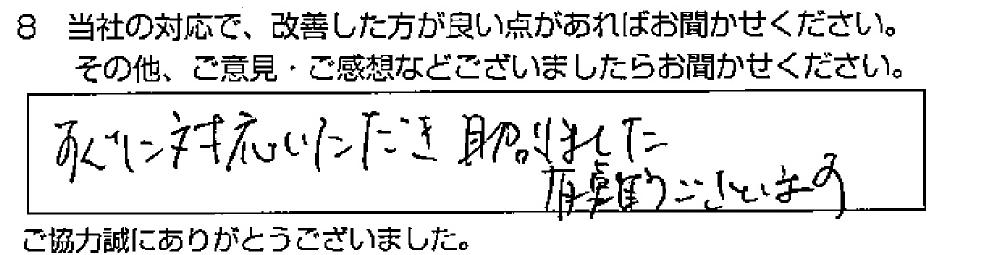 8 当社の対応で、改善した方が良い点があればお聞かせください。
その他、ご意見・ご感想などございましたらお聞かせください。
すぐに対応いただき助かりました
有難うございます
ご協力誠にありがとうございました。